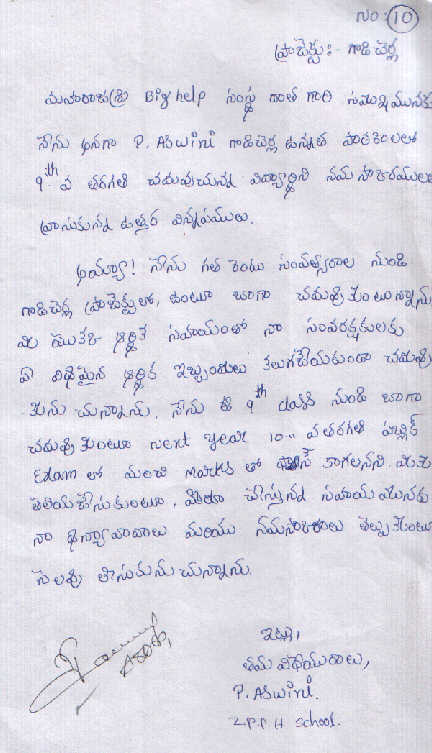 NO: 10
ప్రాజెక్టు:- గాడిచెర్ల
మహారాజశ్రీ Big help సంస్థ గారి సముఖమునకు
నేను అనగా P. ASwini గాడిచెర్ల ఉన్నత పాఠశాలలో
9th వ తరగతి చదువుచున్న విద్యార్థిని నమస్కారములు
వ్రాసుకున్న ఉత్తర విన్నపములు.
అయ్యా! నేను గత రెండు సంవత్సరాల నుండి
గాడిచెర్ల ప్రాజెక్టులో, ఉంటూ బాగా చదువుకుంటున్నాను
మీ ఆర్థిక సహాయంతో నా సంరక్షకులకు
ఏ విధమైన ఆర్థిక ఇబ్బందులు కలుగచేయకుండా చదువు
కును చున్నాను. నేను ఈ 9th class నుండి బాగా
చదువుకుంటూ next year 10వ తరగతి పబ్లిక్
Exam లో మంచి marks తో పాస్ కాగలనని మీకు
తెలియచేసుకుంటూ, మీరు చేస్తున్న సహాయమునకు
నా ధన్యవాదాలు మరియు నమస్కారాలు తెల్పుకుంటూ
సెలవు తీసుకొనుచున్నాను.
ఇట్లు,
తమ విధేయురాలు,
P. ASwini.
Z.P.P.H School.